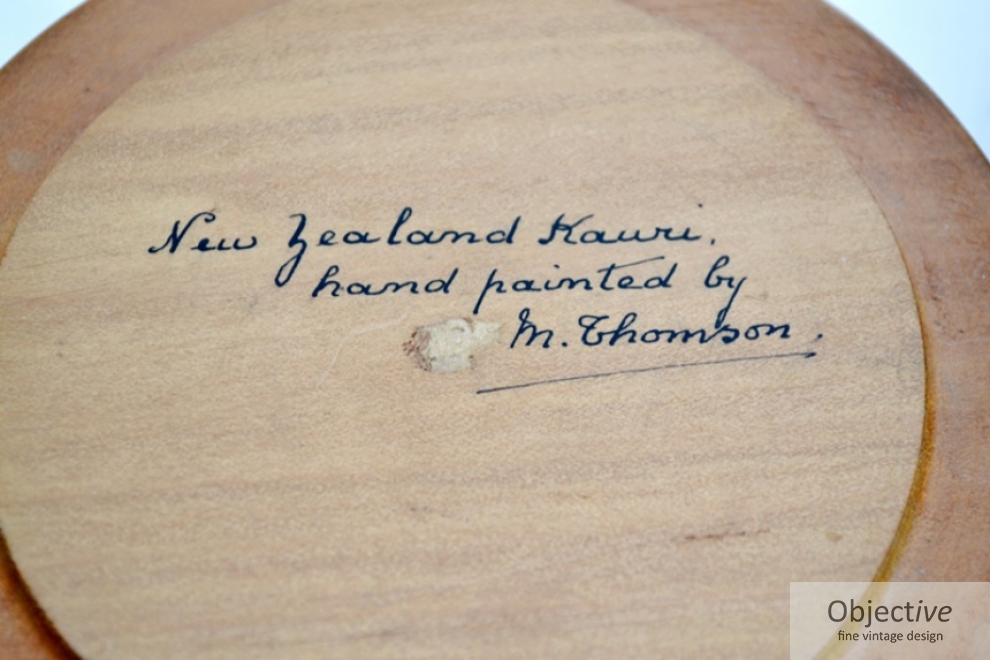 New Zealand Kauri.
hand painted by
M. Thomson.
Objective
fine vintage design